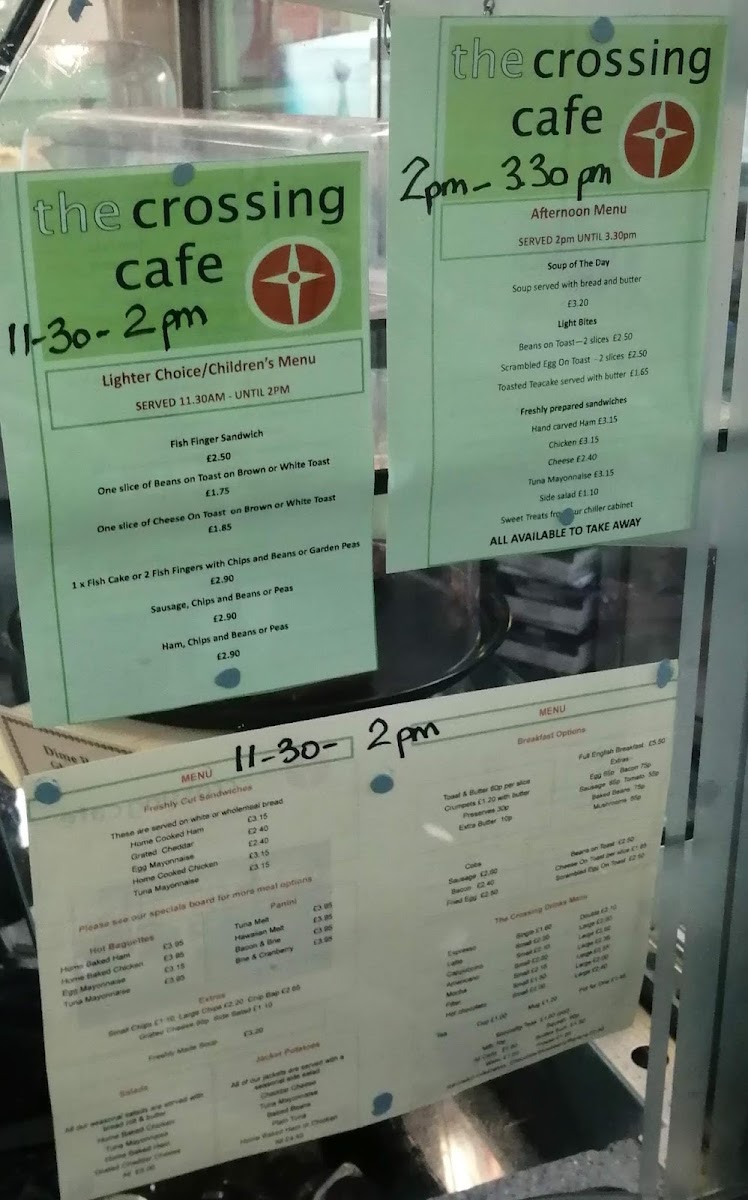 the crossing
cafe
11-30-2pm
Lighter Choice/Children's Menu
SERVED 11.30AM - UNTIL 2PM
Fish Finger Sandwich
£2.50
One slice of Beans on Toast on Brown or White Toast
£1.75
One slice of Cheese On Toast on Brown or White Toast
£1.85
1 x Fish Cake or 2 Fish Fingers with Chips and Beans or Garden Peas
£2.90
Sausage, Chips and Beans or Peas
£2.90
Ham, Chips and Beans or Peas
£2.90
the crossing
cafe
2pm-3.30pm
Afternoon Menu
SERVED 2pm UNTIL 3.30pm
Soup of The Day
Soup served with bread and butter
£3.20
Light Bites
Beans on Toast—2 slices £2.50
Scrambled Egg On Toast - 2 slices £2.50
Toasted Teacake served with butter £1.65
Freshly prepared sandwiches
Hand carved Ham £3.15
Chicken £3.15
Cheese £2.40
Tuna Mayonnaise £3.15
Side salad £1.10
Sweet Treats from our chiller cabinet
ALL AVAILABLE TO TAKE AWAY
11-30- 2pm
MENU
Freshly Cut Sandwiches
These are served on white or wholemeal bread
Home Cooked Ham £3.15
Grated Cheddar £2.40
Egg Mayonnaise £2.40
Home Cooked Chicken £3.15
Tuna Mayonnaise £3.15
Please see our specials board for more meal options
Hot Baguettes
Home Baked Ham £3.95
Home Baked Chicken £3.95
Egg Mayonnaise £3.15
Tuna Mayonnaise £3.95
Panini
Tuna Melt £3.95
Hawaiian Melt £3.95
Bacon & Brie £3.95
Brie & Cranberry £3.95
Extras
Small Chips £1.10, Large Chips £2.20
Grated Cheese Side Salad £1.10
Freshly Made Soup £3.20
Salads
All our seasonal salads are served with
bread roll & butter
Home Baked Chicken
Tuna Mayonnaise
Home Baked Ham
Grated Cheddar Cheese
Jacket Potatoes
All of our jackets are served with a
seasonal side salad
Cheddar Cheese
Tuna Mayonnaise
Baked Beans
Plain Tuna
Home Baked Ham or Chicken
MENU
Breakfast Options
Toast & Butter 60p per slice
Crumpets £1.20 with butter
Preserves 30p
Extra Butter 10p
Full English Breakfast £5.50
Extras
Egg Bacon 75p
Sausage Tomato
Baked Beans 75p
Mushrooms
Cobs
Sausage
Bacon £2.40
Fried Egg
Beans on Toast £2.50
Cheese On Toast per slice
Scrambled Egg On Toast £2.50
The Crossing Drinks Menu
Espresso
Latte
Cappuccino
Americano
Mocha
Filter
Hot chocolate
Tea
Dime